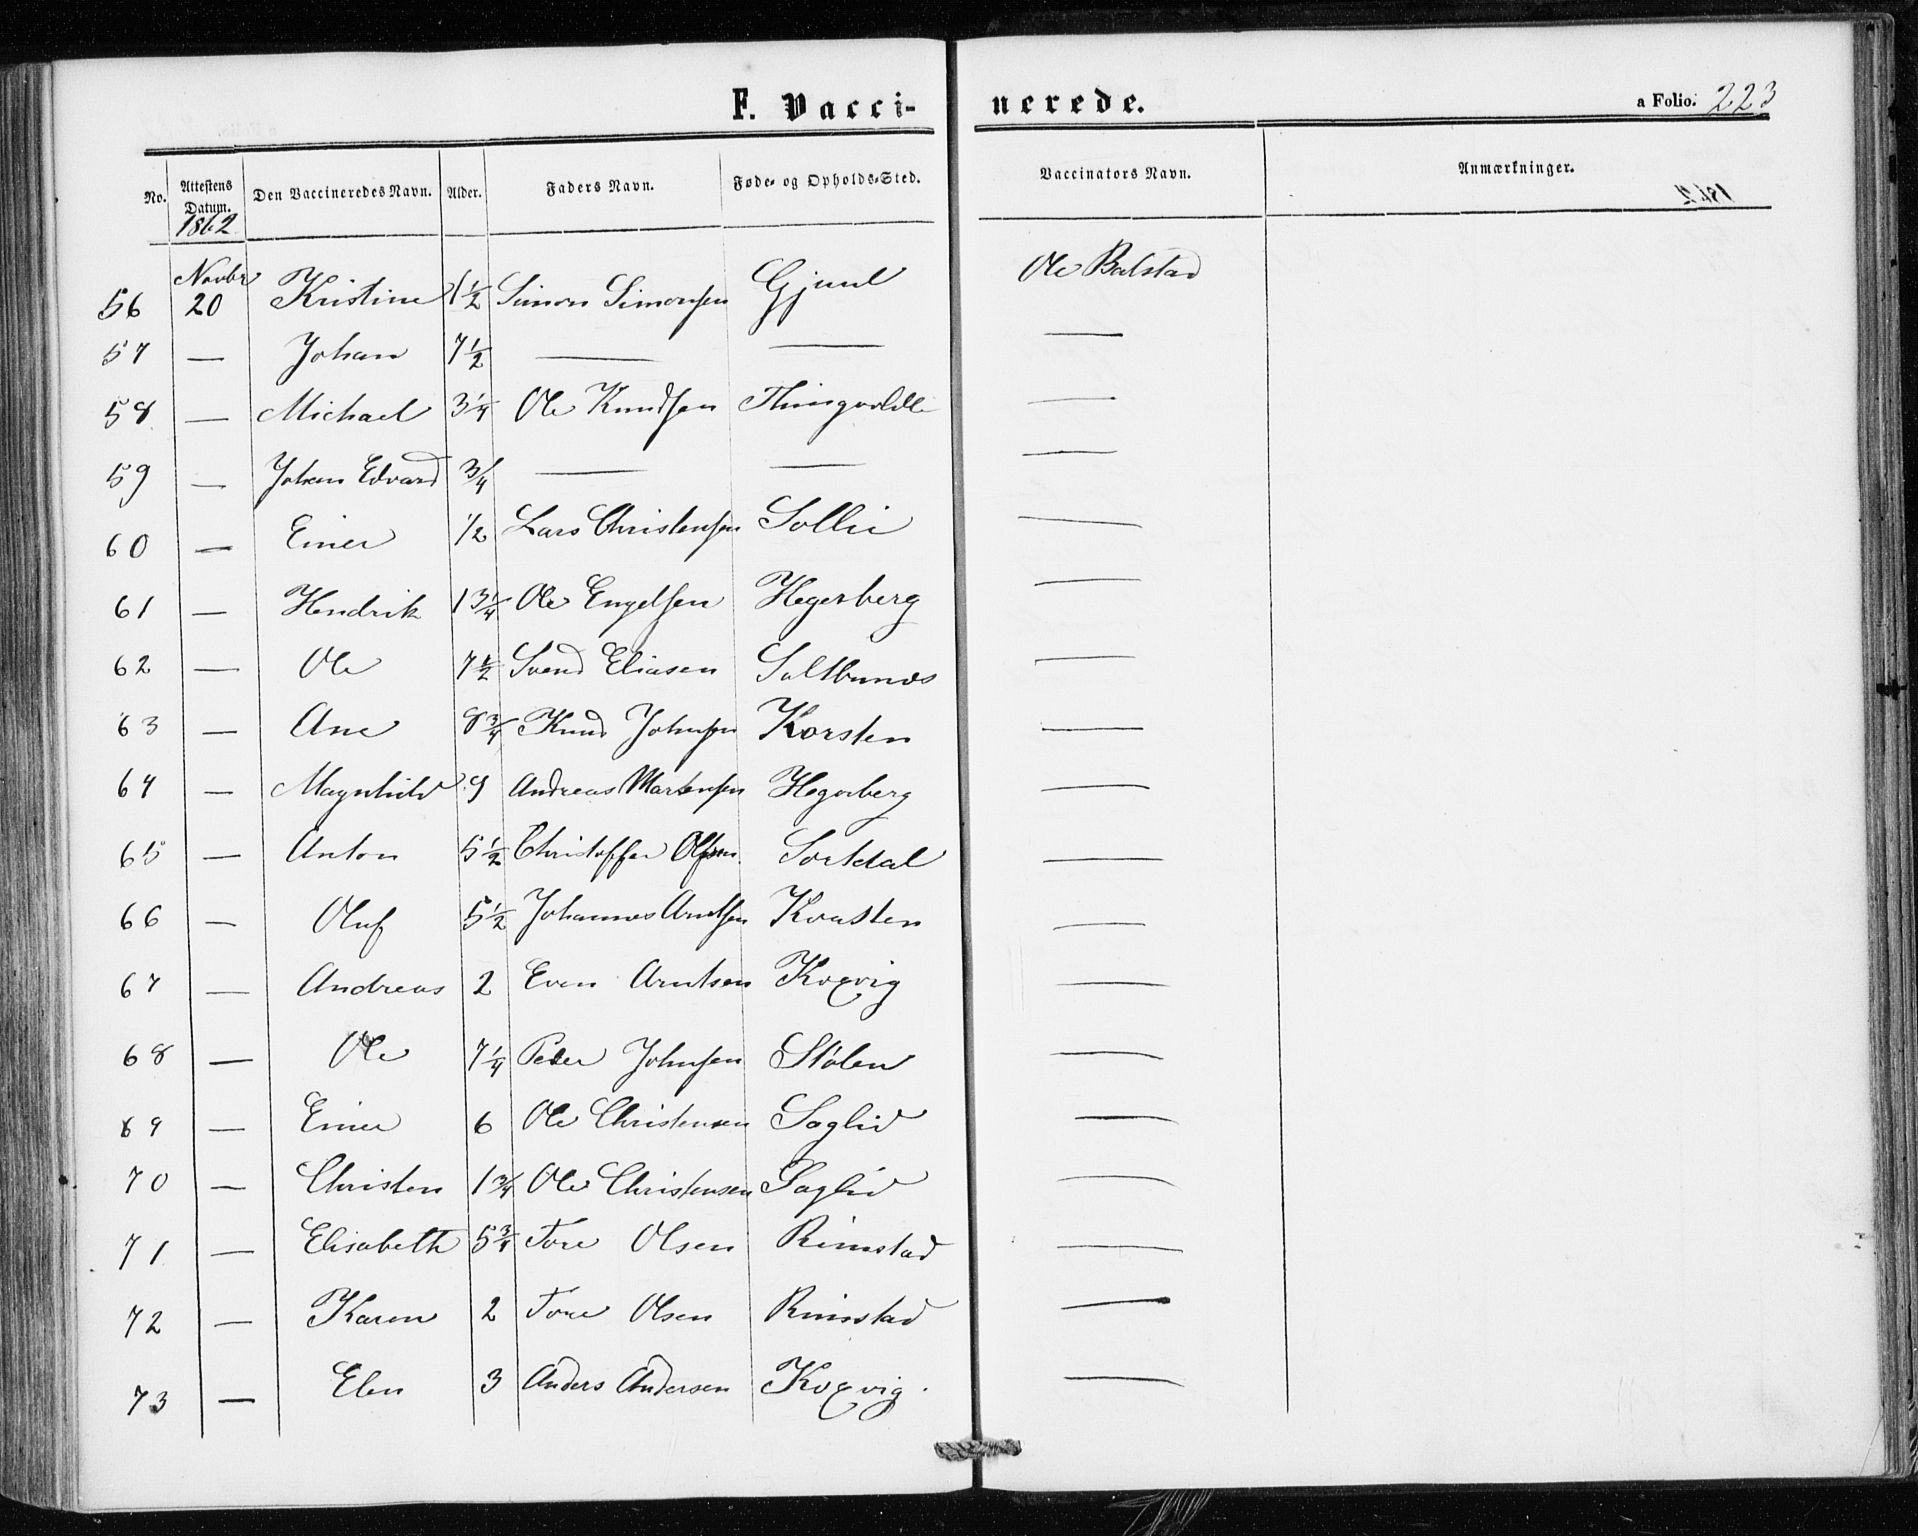 F. Vacci- nerede. a Folio. 223
No. Attestens Datum. Den Vaccineredes Navn. Alder. Faders Navn. Føde- og Opholds-Sted. Vaccinators Navn. Anmærkninger.
1862
56 Novbr 20 Kristine 1 1/2 Simon Simonsen Gjuul Ole Balstad
57 — Johan 7 1/2 — — —
58 — Michael 3 1/4 Ole Knudsen —
59 — Johan Edvard 3/4 — — —
60 — Einer 1/2 Lars Christensen Sollie —
61 — Hendrik 1 3/4 Ole Engelsen Hegerberg —
62 — Ole 7 1/2 Svend Eliasen —
63 — Ane 8 3/4 Knud Johnsen Korsten —
64 — Magnhild 9 Andreas Mortensen Hegerberg —
65 — Anton 5 1/2 Christoffer Olsen Sortdal —
66 — Oluf 5 1/2 Johannes Arntsen Kvasten —
67 — Andreas 2 Even Arntsen —
68 — Ole 7 1/4 Peder Johnsen Stølen —
69 — Einer 6 Ole Christensen Soglid —
70 — Christen 1 3/4 Ole Christensen Soglid —
71 — Elisabeth 5 3/4 Tore Olsen Rimstad —
72 — Karen 2 Tore Olsen Rimstad —
73 — Elen 3 Anders Andersen —